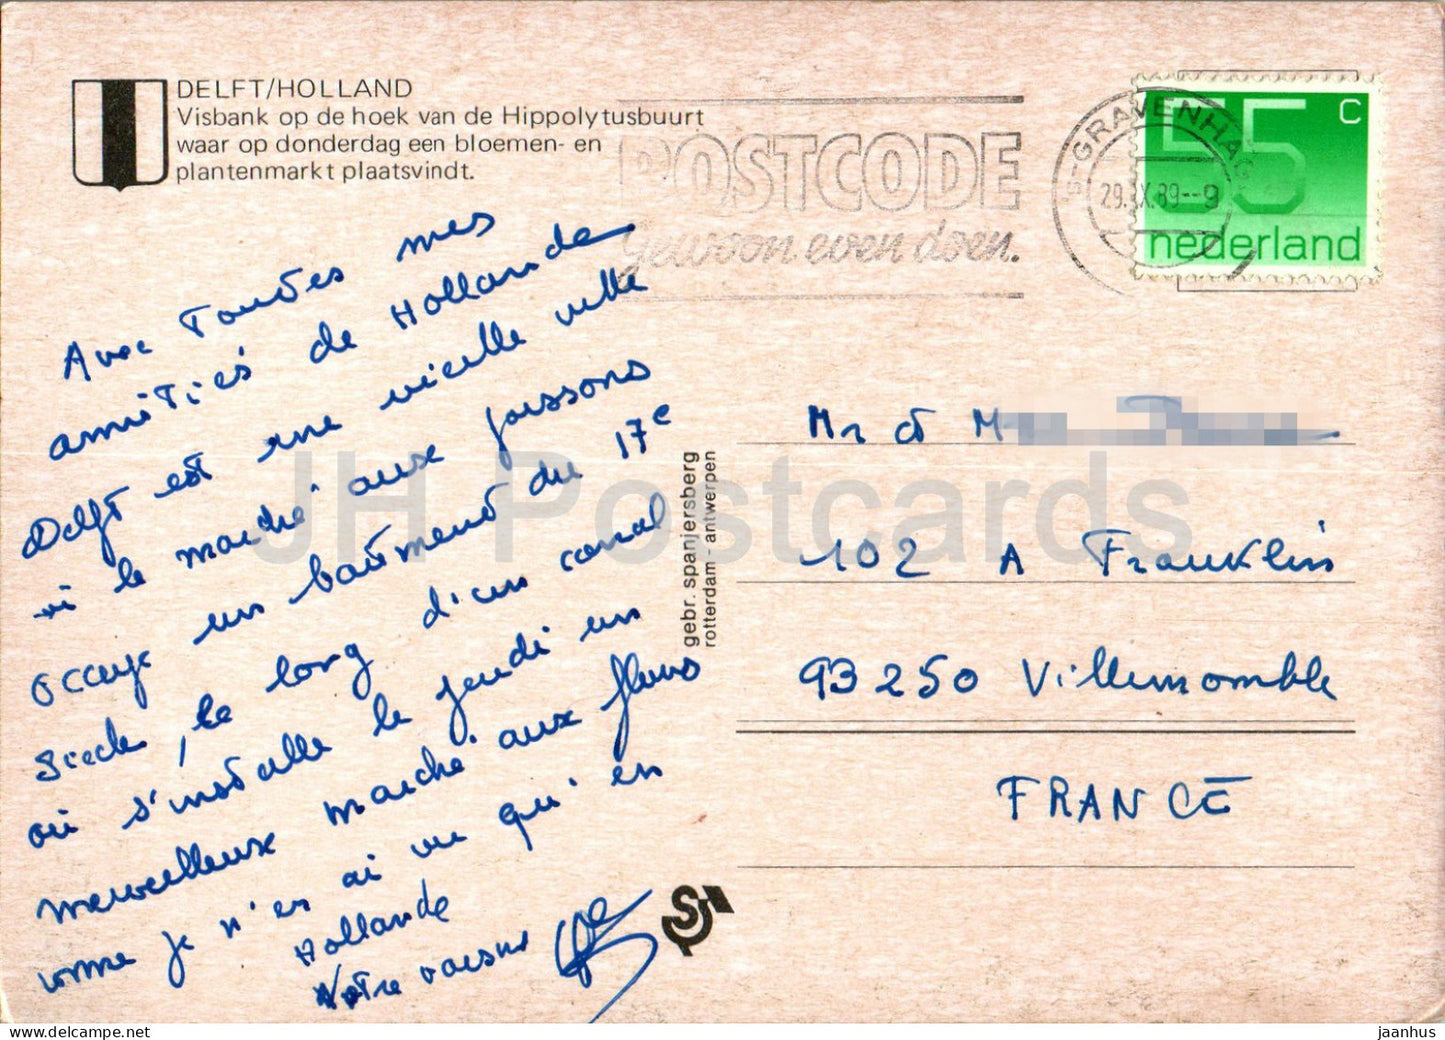 DELFT/HOLLAND
Visbank op de hoek van de Hippolytusbuurt
waar op donderdag een bloemen- en
plantenmarkt plaatsvindt.
POSTCODE
gewoon even doen.
's-GRAVENHAGE
29.IX.89--9
55 c
nederland
Avec Toutes mes
amitiés de Hollande
Delft est une vieille ville
où le marché aux poissons
occupe un bâtiment du 17e
siècle, le long d'un canal
où s'installe le jeudi un
merveilleux marché aux fleurs
comme je n'en ai vu qu'en
Hollande
Votre voisine
gebr. spanjersberg
rotterdam - antwerpen
Mr et M
102 A Franklin
93250 Villemomble
FRANCE
JH Postcards
jaanhus - delcampe.net